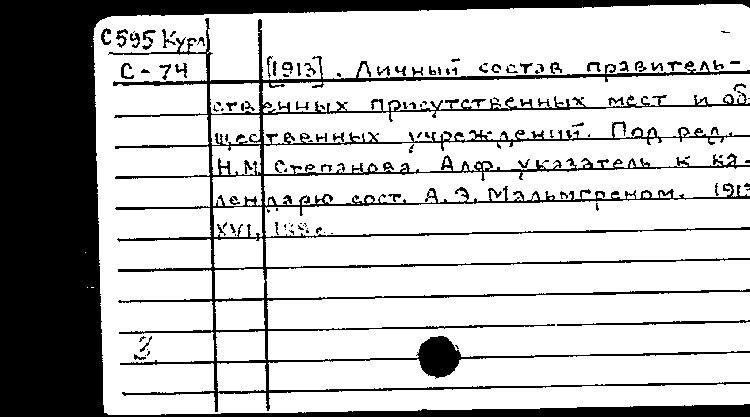 С595 Курл
С-74
[1913]. Личный состав правитель-
ственных присутственных мест и об-
щественных учреждений. Под ред.
Н.М. Степанова. Алф. указатель к ка-
лендарю сост. А.Э. Мальмгреном. 1913
XVI, с.
3